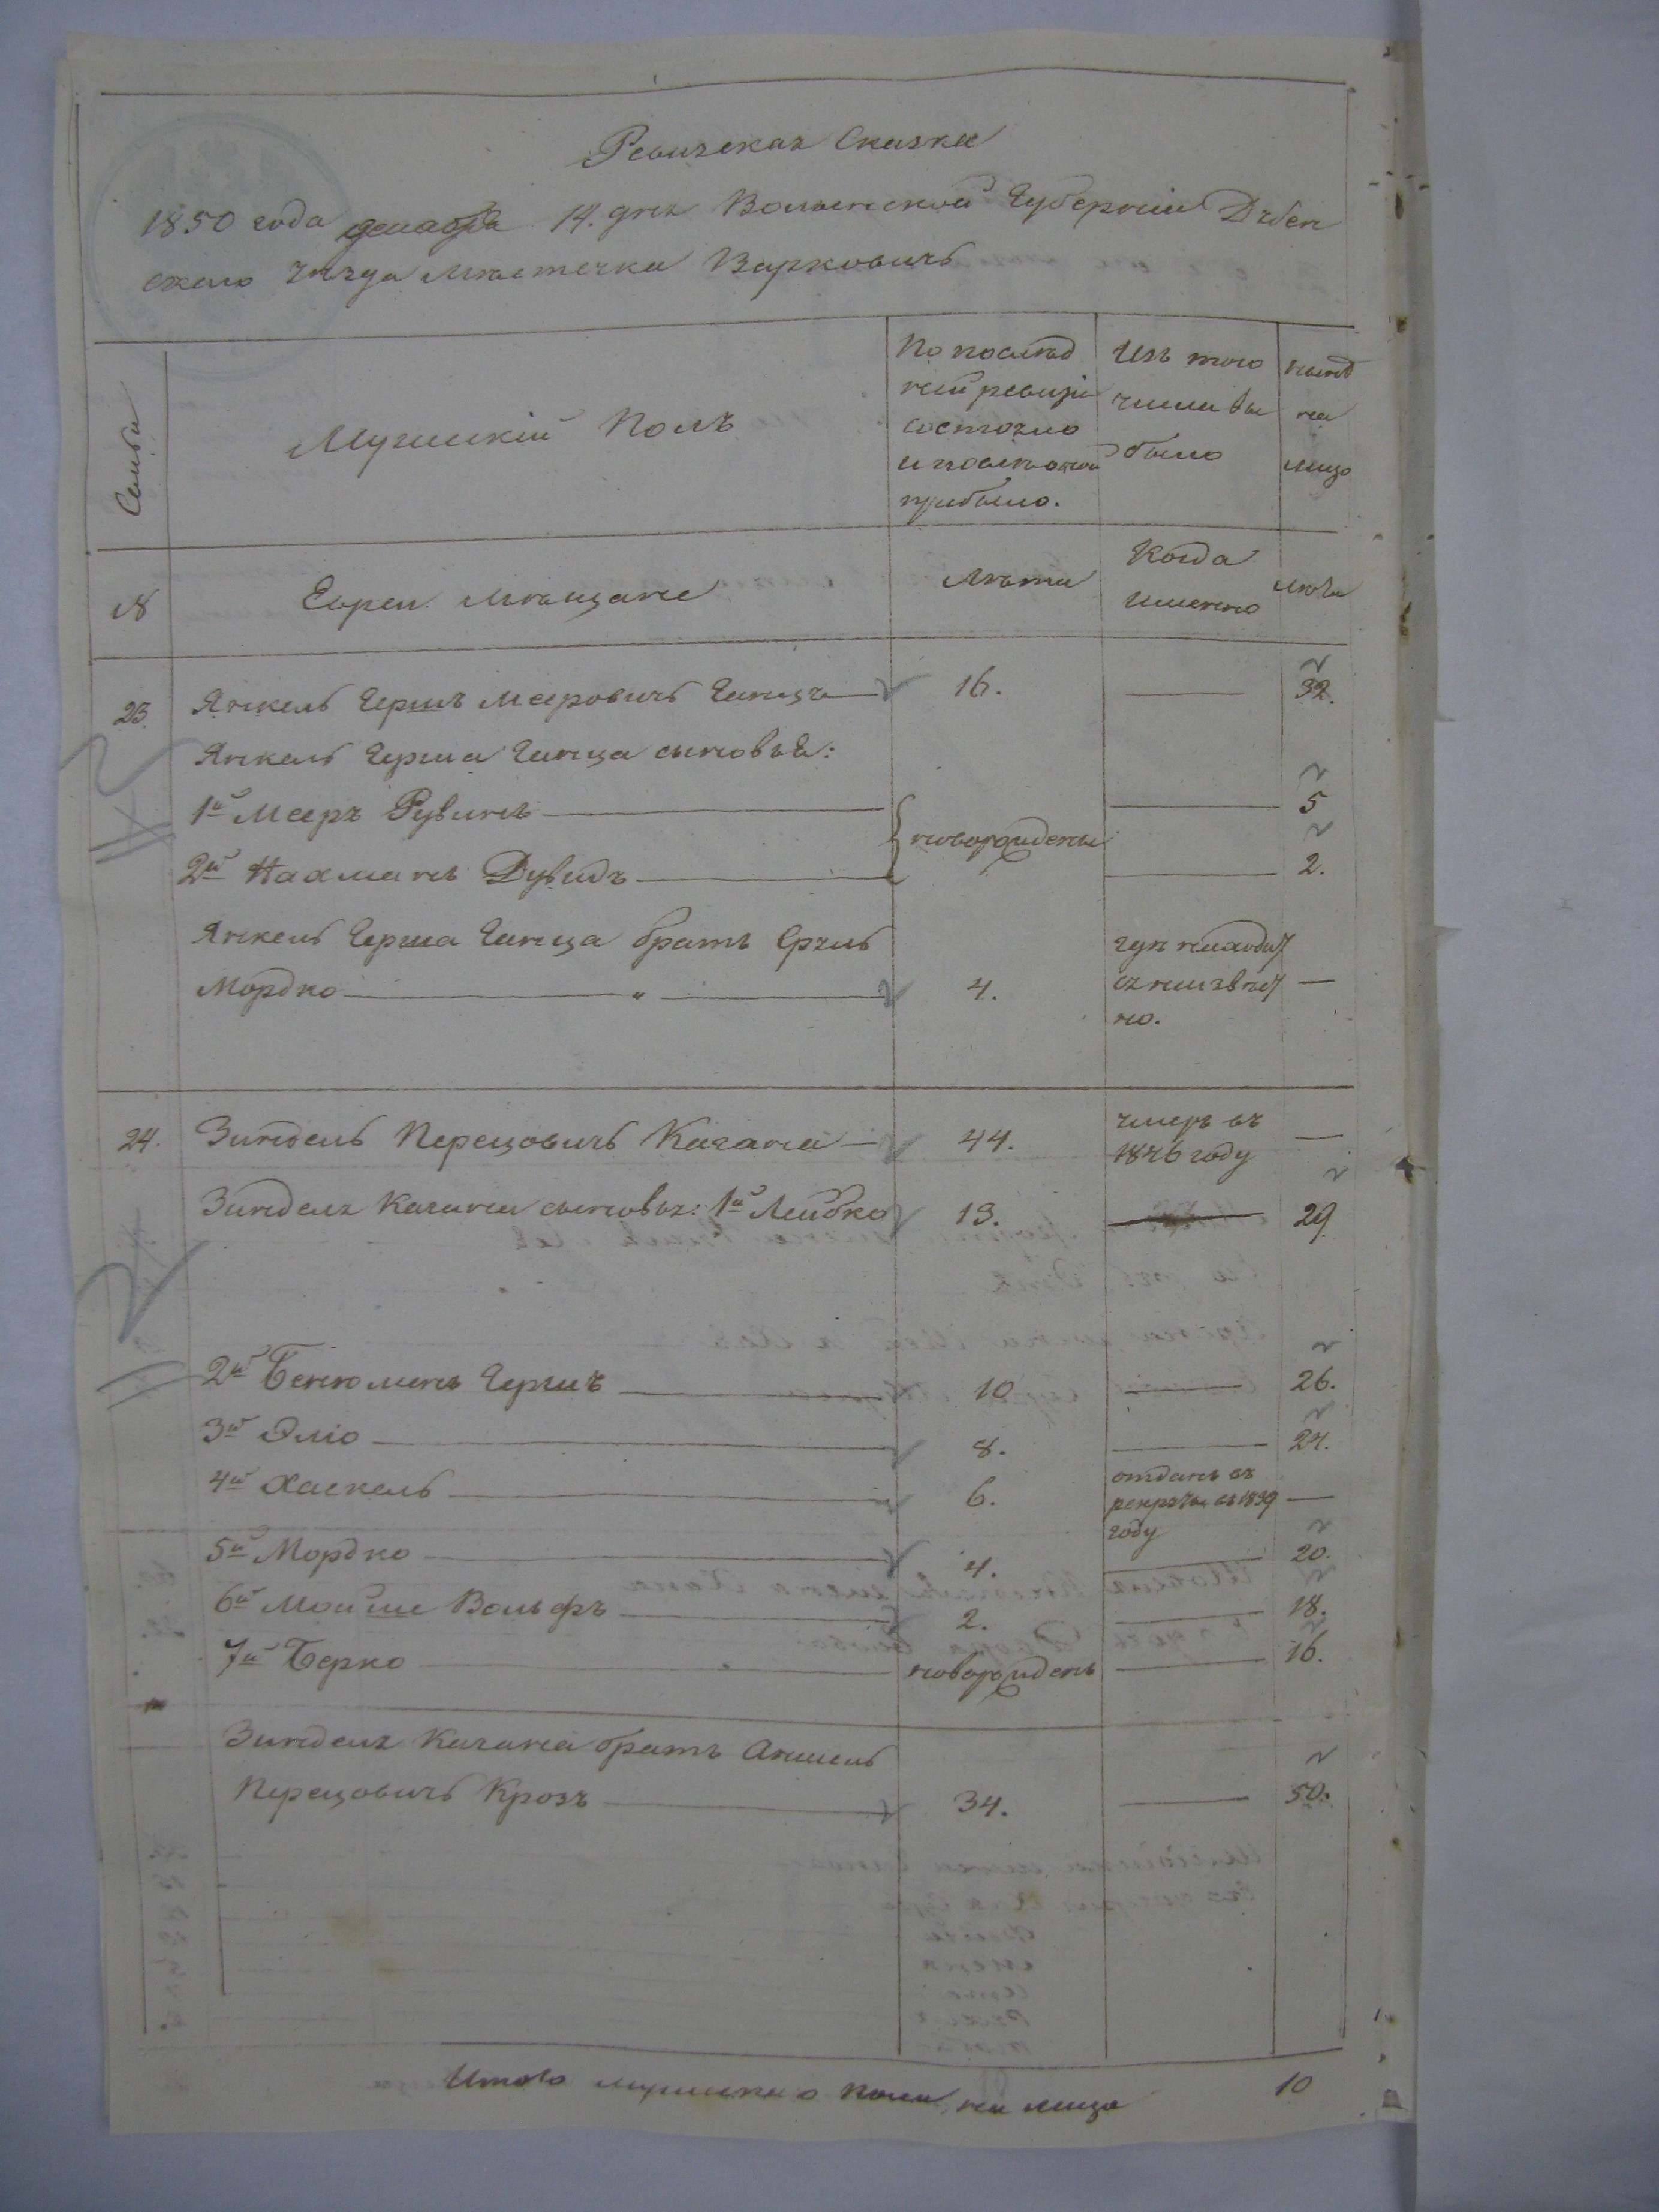 Ревизская Сказка
1850 года декабря 14. дня Волынской Губернии Дубен
скаго уезда местечка Варковичъ
Семьи
Мужискій Полъ
По послѣд
ней ревизіи
состояло
и послѣ оной
прибыло.
Изъ того
числа вы
было
нынѣ
на
лицо
№
Евреи Мѣщане
Лѣта
Когда
именно
лѣта
23
Янкель Гершъ Мееровичъ Ганцъ
16.
32.
Янкель Герша Ганца сыновья:
1й Мееръ Рувинъ
новорождены
5
2й Нахманъ Дувидъ
2.
Янкель Герша Ганца братъ Срэль
Мордко
4.
гдѣ находит
ся неизвѣст
но.
24.
Зиндель Перецовичъ Качана
44.
умеръ въ
1846 году
Зинделя Качана сыновья: 1й Лейбко
13.
29
2й Бенюминъ Гершъ
10
26.
3й Эліо
8.
24.
4й Хаскель
6.
отданъ въ
рекруты въ 1839
году
5й Мордко
4.
20.
6й Мойше Вольфъ
2.
18.
7й Берко
новорожденъ
16.
Зинделя Качана братъ Аншель
Перецовичъ Крозъ
34.
50.
Итого мужиска о пола на лицо
10